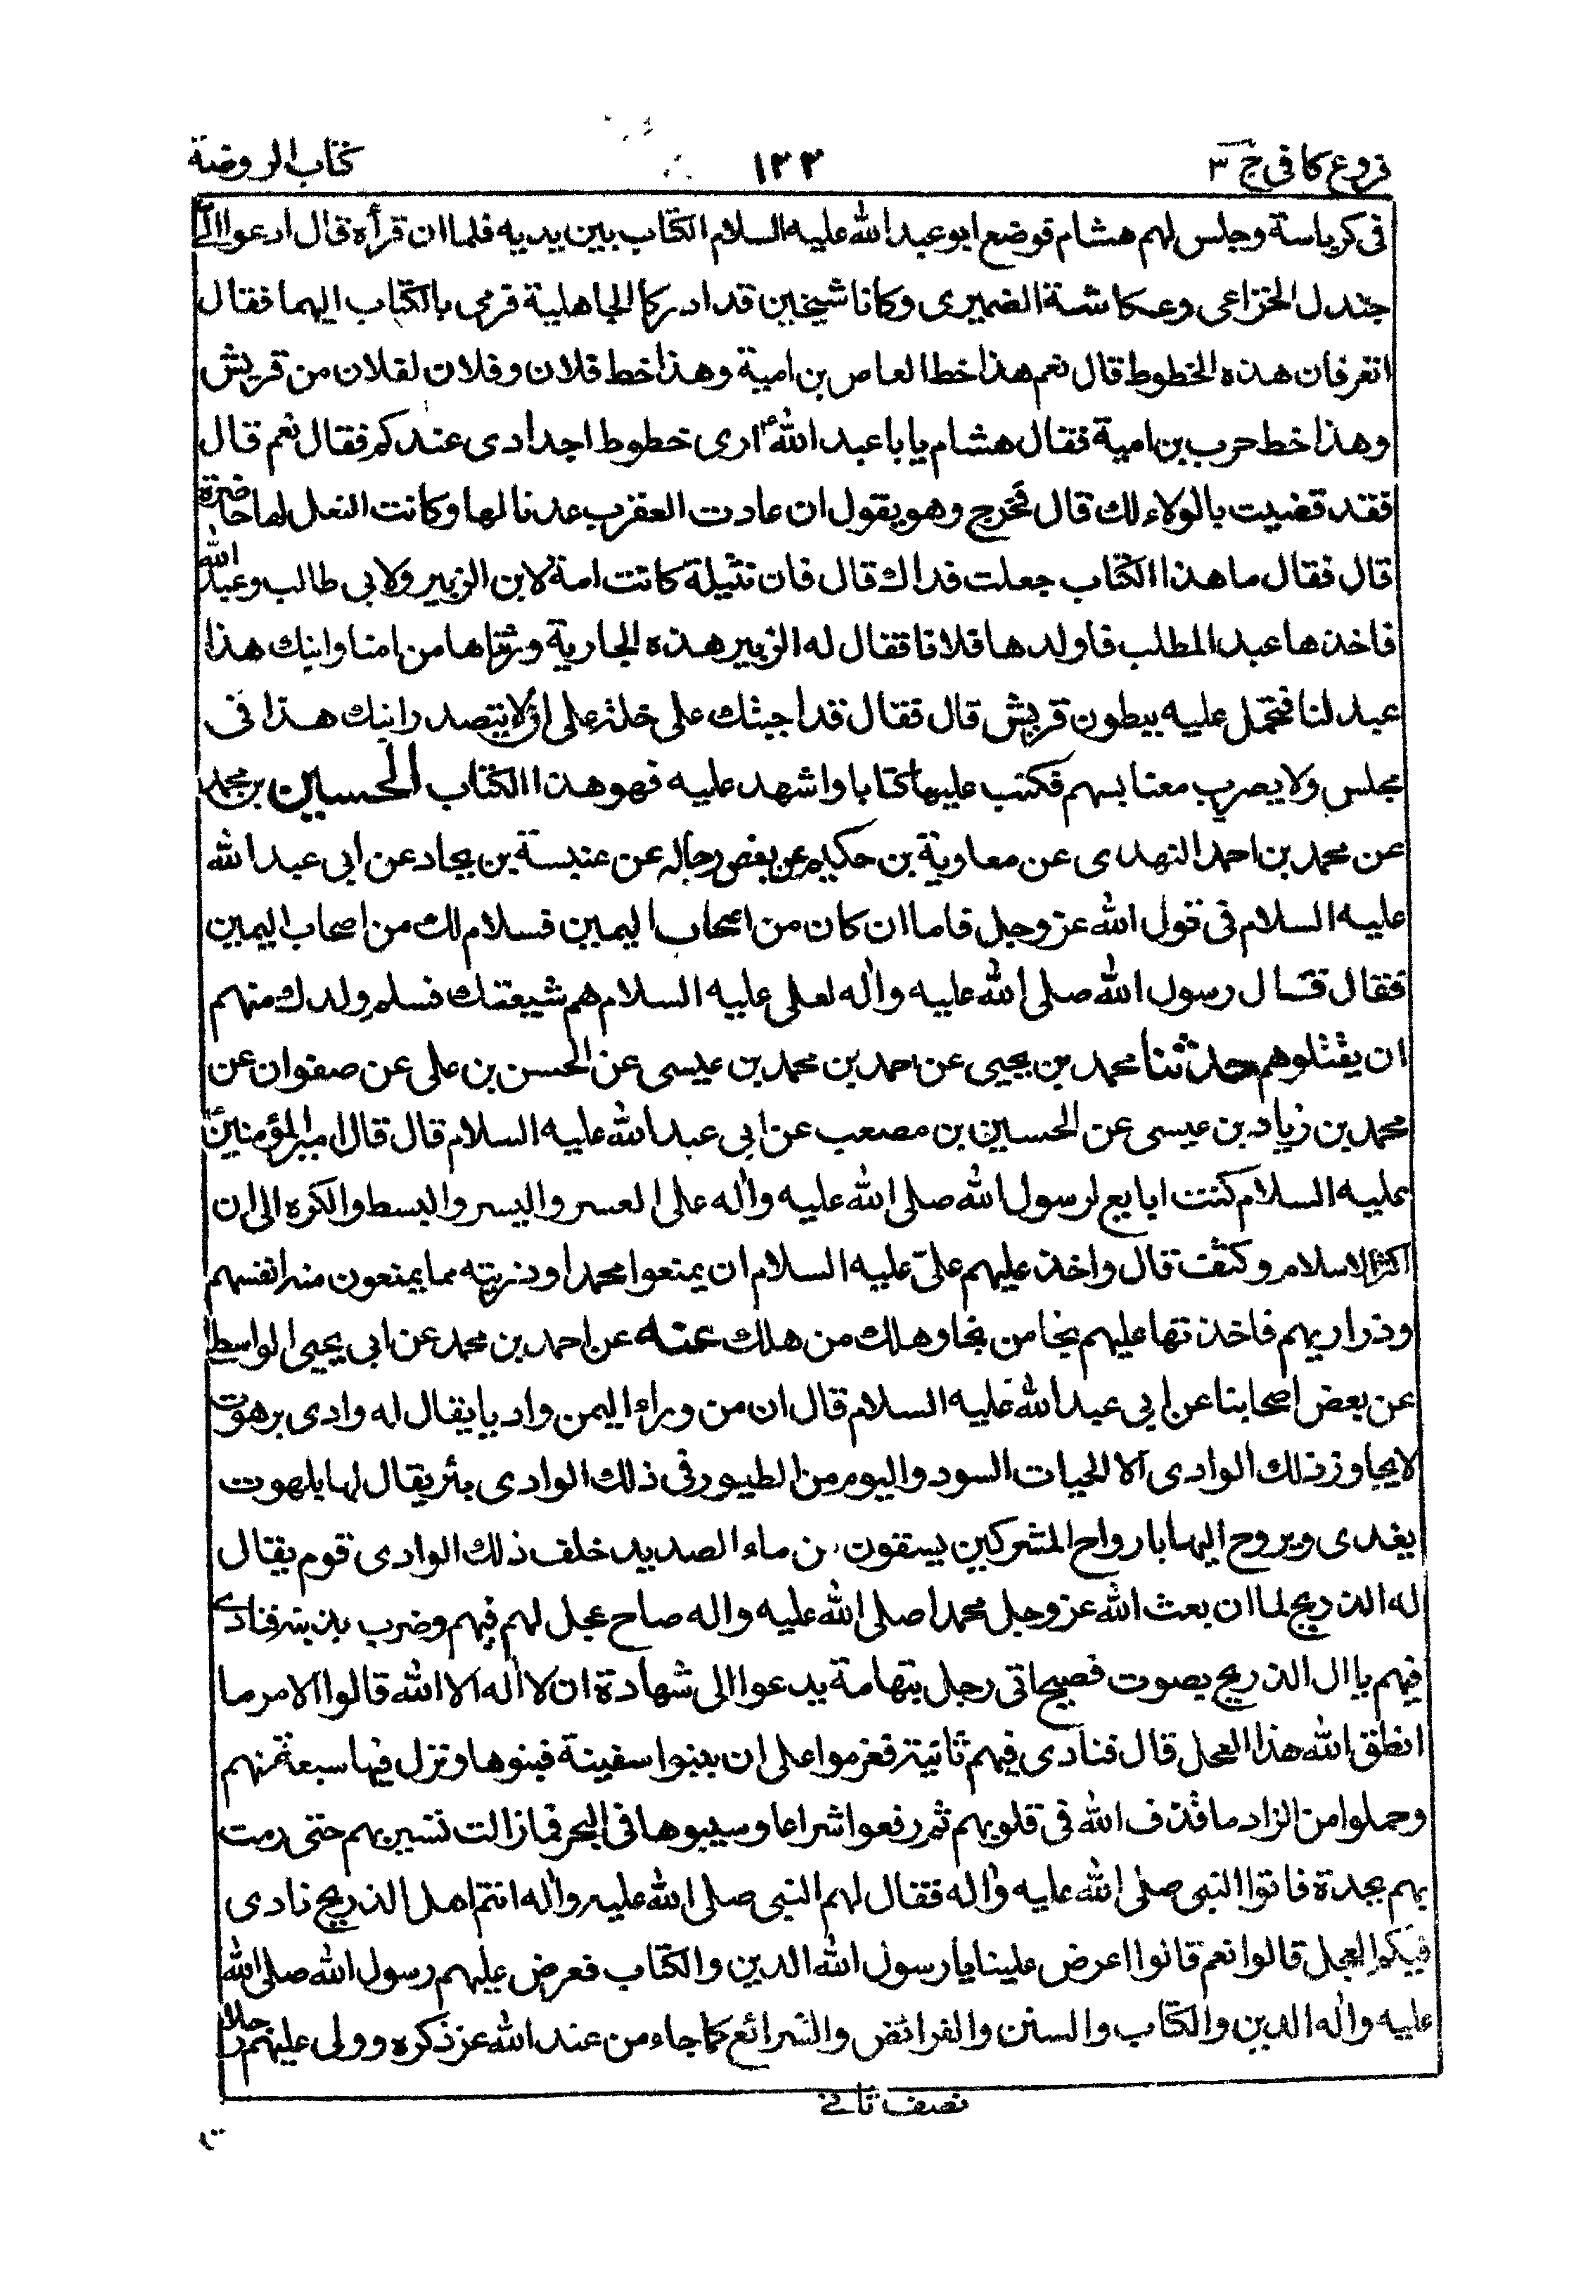 فروع كافى ج ٣
١٢٣
كتاب الروضة
فى كرياسة وجلس لهم هشام فوضع ابو عبد الله عليه السلام الكتاب بين يديه فلما ان قرأه قال ادعوا الى
جندل الخزاعى وعكاشة الضميرى وكانا شيخين قد ادركا الجاهلية فرمى بالكتاب اليهما فقال
اتعرفان هذه الخطوط قال نعم هذا خط العاص بن امية وهذا خط فلان وفلان لفلان من قريش
وهذا خط حرب بن امية فقال هشام يا با عبد الله ارى خطوط اجدادى عندكم فقال نعم قال
فقد قضيت بالولاء لك قال فخرج وهو يقول ان عادت العقرب عدنا لها وكانت النعل لها حاضرة
قال فقال ما هذا الكتاب جعلت فداك قال فان نثيلة كانت امة لابن الزبير ولابى طالب وعبد الله
فاخذها عبد المطلب فاولدها فلانا فقال له الزبير هذه الجارية ورثناها من امنا وابنك هذا
عبد لنا فتحمل عليه ببطون قريش قال فقال قد اجبتك على خلة على ان لا يتصدر ابنك هذا فى
مجلس ولا يضرب معنا بسهم فكتب عليها كتابا واشهد عليه فهو هذا الكتاب الحسين بن محمد
عن محمد بن احمد النهدى عن معاوية بن حكيم عن بعض رجاله عن عنبسة بن بجاد عن ابى عبد الله
عليه السلام فى قول الله عز وجل فاما ان كان من اصحاب اليمين فسلام لك من اصحاب اليمين
فقال قال رسول الله صلى الله عليه واله لعلى عليه السلام هم شيعتك فسلم ولدك منهم
ان يقتلوهم حدثنا محمد بن يحيى عن احمد بن محمد بن عيسى عن الحسن بن على عن صفوان عن
محمد بن زياد بن عيسى عن الحسين بن مصعب عن ابى عبد الله عليه السلام قال قال امير المؤمنين
عليه السلام كنت ابايع لرسول الله صلى الله عليه واله على العسر واليسر والبسط والكره الى ان
اكثر الاسلام وكثف قال واخذ عليهم علىّ عليه السلام ان يمنعوا محمدا وذريته مما يمنعون منه انفسهم
وذراريهم فاخذتها عليهم نجا من نجا وهلك من هلك عنه عن احمد بن محمد عن ابى يحيى الواسطى
عن بعض اصحابنا عن ابى عبد الله عليه السلام قال ان من وراء اليمن واديا يقال له وادى برهوت
لا يجاوز ذلك الوادى الا الحيات السود والبوم من الطيور فى ذلك الوادى بئر يقال لها بلهوت
يغدى ويروح اليها بارواح المشركين يسقون من ماء الصديد خلف ذلك الوادى قوم يقال
له الذريح لما ان بعث الله عز وجل محمدا صلى الله عليه واله صاح عجل لهم فيهم وضرب بذنبه فنادى
فيهم يا ال الذريح بصوت فصيح اتى رجل بتهامة يدعوا الى شهادة ان لا اله الا الله قالوا الامر ما
انطق الله هذا العجل قال فنادى فيهم ثانية فعزموا على ان يبنوا سفينة فبنوها ونزل فيها سبعة منهم
وحملوا من الزاد ما قذف الله فى قلوبهم ثم رفعوا شراعا وسيبوها فى البحر فما زالت تسير بهم حتى رمت
بهم بجدة فاتوا النبى صلى الله عليه واله فقال لهم النبى صلى الله عليه واله انتم اهل الذريح نادى
فيكم العجل قالوا نعم قالوا اعرض علينا يا رسول الله الدين والكتاب فعرض عليهم رسول الله صلى الله
عليه واله الدين والكتاب والسنن والفرائض والشرائع كما جاء من عند الله عز ذكره وولى عليهم رجلا
نصف ثانى